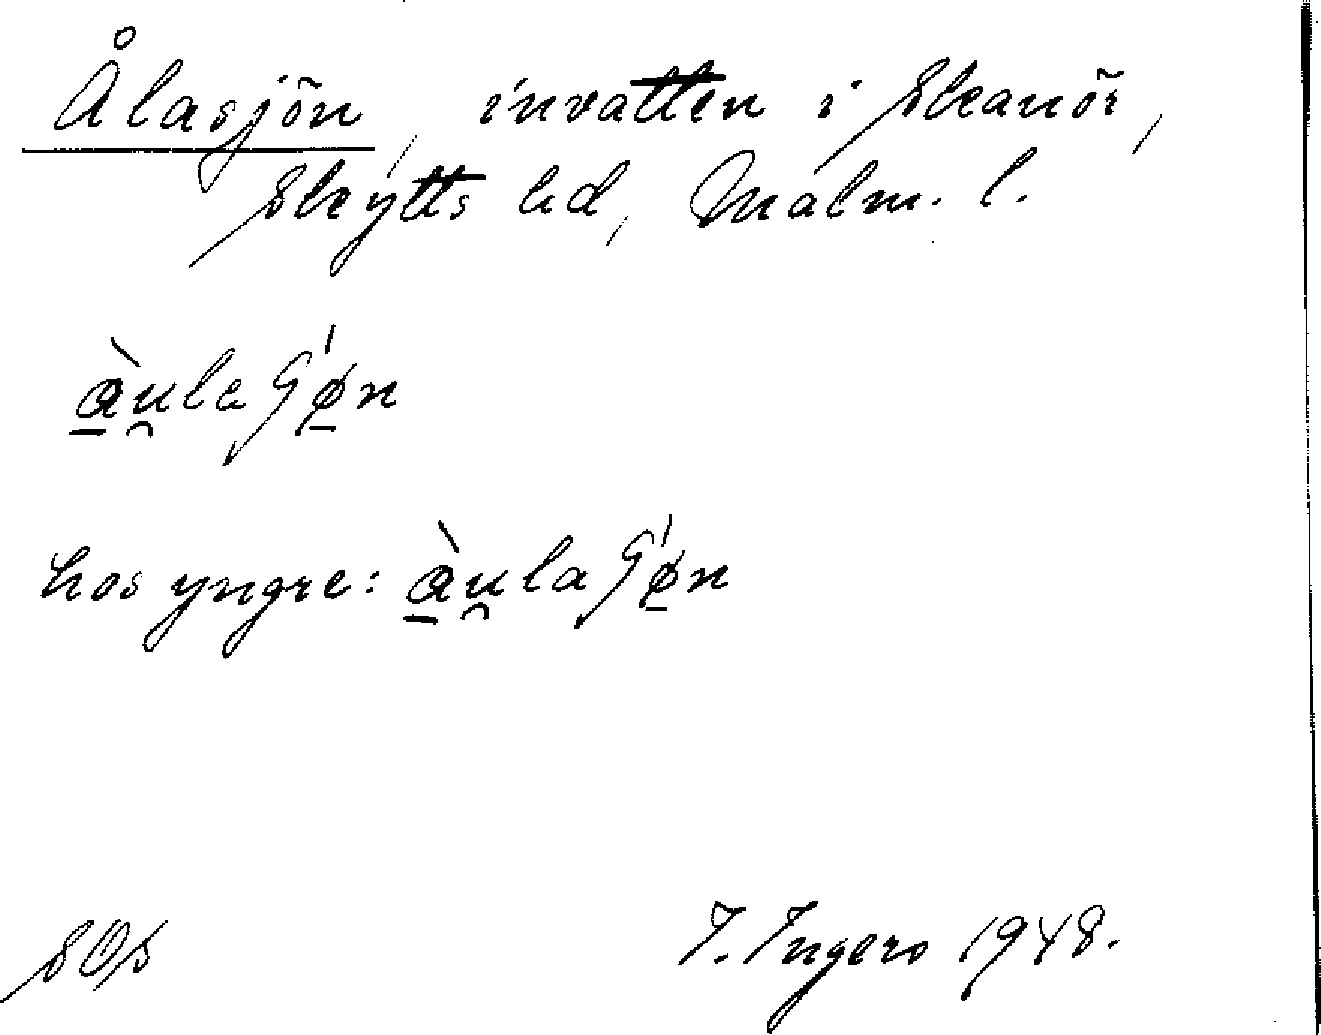 Ålasjön, invatten i Skanör,
Skytts hd, Malm. l.
à̱u̯laʃǿ̱n
hos yngre: à̱u̯laʃǿ̱n
I. Ingers 1948.